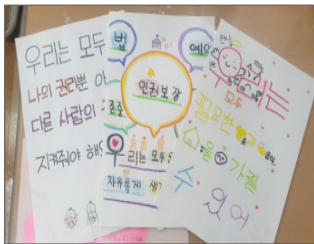 우리는 모두
나의 권리뿐 아
다른 사람의
지켜줘야 해
법
예의
인권보장
존중
우리는 모두
자유롭게
우리는
모두
필요한
소중 가정
수
있어